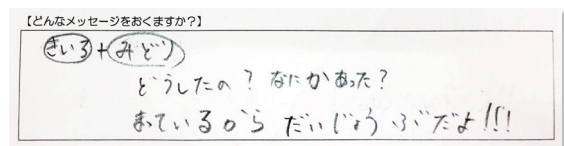 【どんなメッセージをおくますか？】
きいろ+みどり
どうしたの？なにかあった？
まているから だいじょうぶだよ!!!